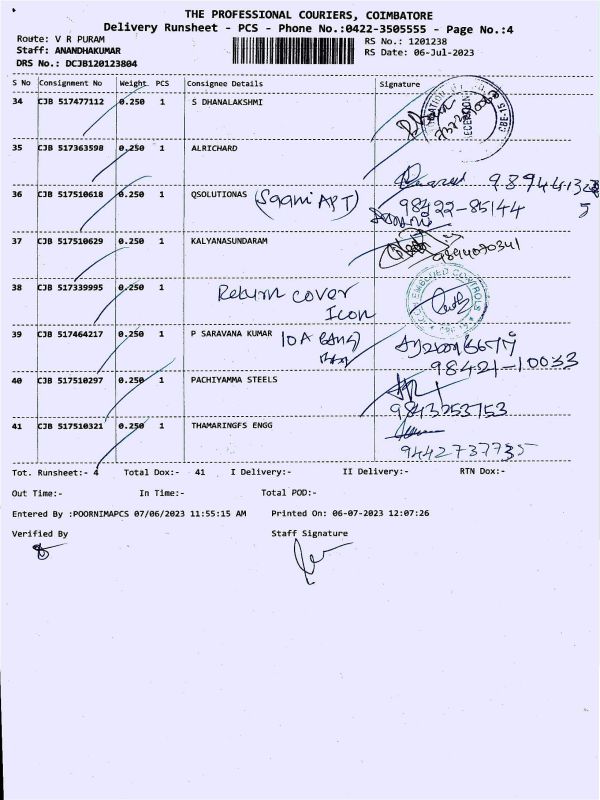 THE PROFESSIONAL COURIERS, COIMBATORE
Delivery Runsheet - PCS - Phone No.:0422-3505555 - Page No.:4
Route: V R PURAM
RS No.: 1201238
Staff: ANANDHAKUMAR
RS Date: 06-Jul-2023
DRS No.: DCJB120123804
S No Consignment No Weight PCS Consignee Details Signature
34 CJB 517477112 0.250 1 S DHANALAKSHMI
35 CJB 517363598 0.250 1 ALRICHARD
36 CJB 517510618 0.250 1 QSOLUTIONAS
98422-85144
37 CJB 517510629 0.250 1 KALYANASUNDARAM 9894090341
38 CJB 517339995 0.250 1 Return cover
Icon
39 CJB 517464217 0.250 1 P SARAVANA KUMAR
98421-10033
40 CJB 517510297 0.250 1 PACHIYAMMA STEELS
9843253753
41 CJB 517510321 0.250 1 THAMARINGFS ENGG
9442737735
Tot. Runsheet:- 4 Total Dox:- 41 I Delivery:- II Delivery:- RTN Dox:-
Out Time:- In Time:- Total POD:-
Entered By :POORNIMAPCS 07/06/2023 11:55:15 AM Printed On: 06-07-2023 12:07:26
Verified By Staff Signature